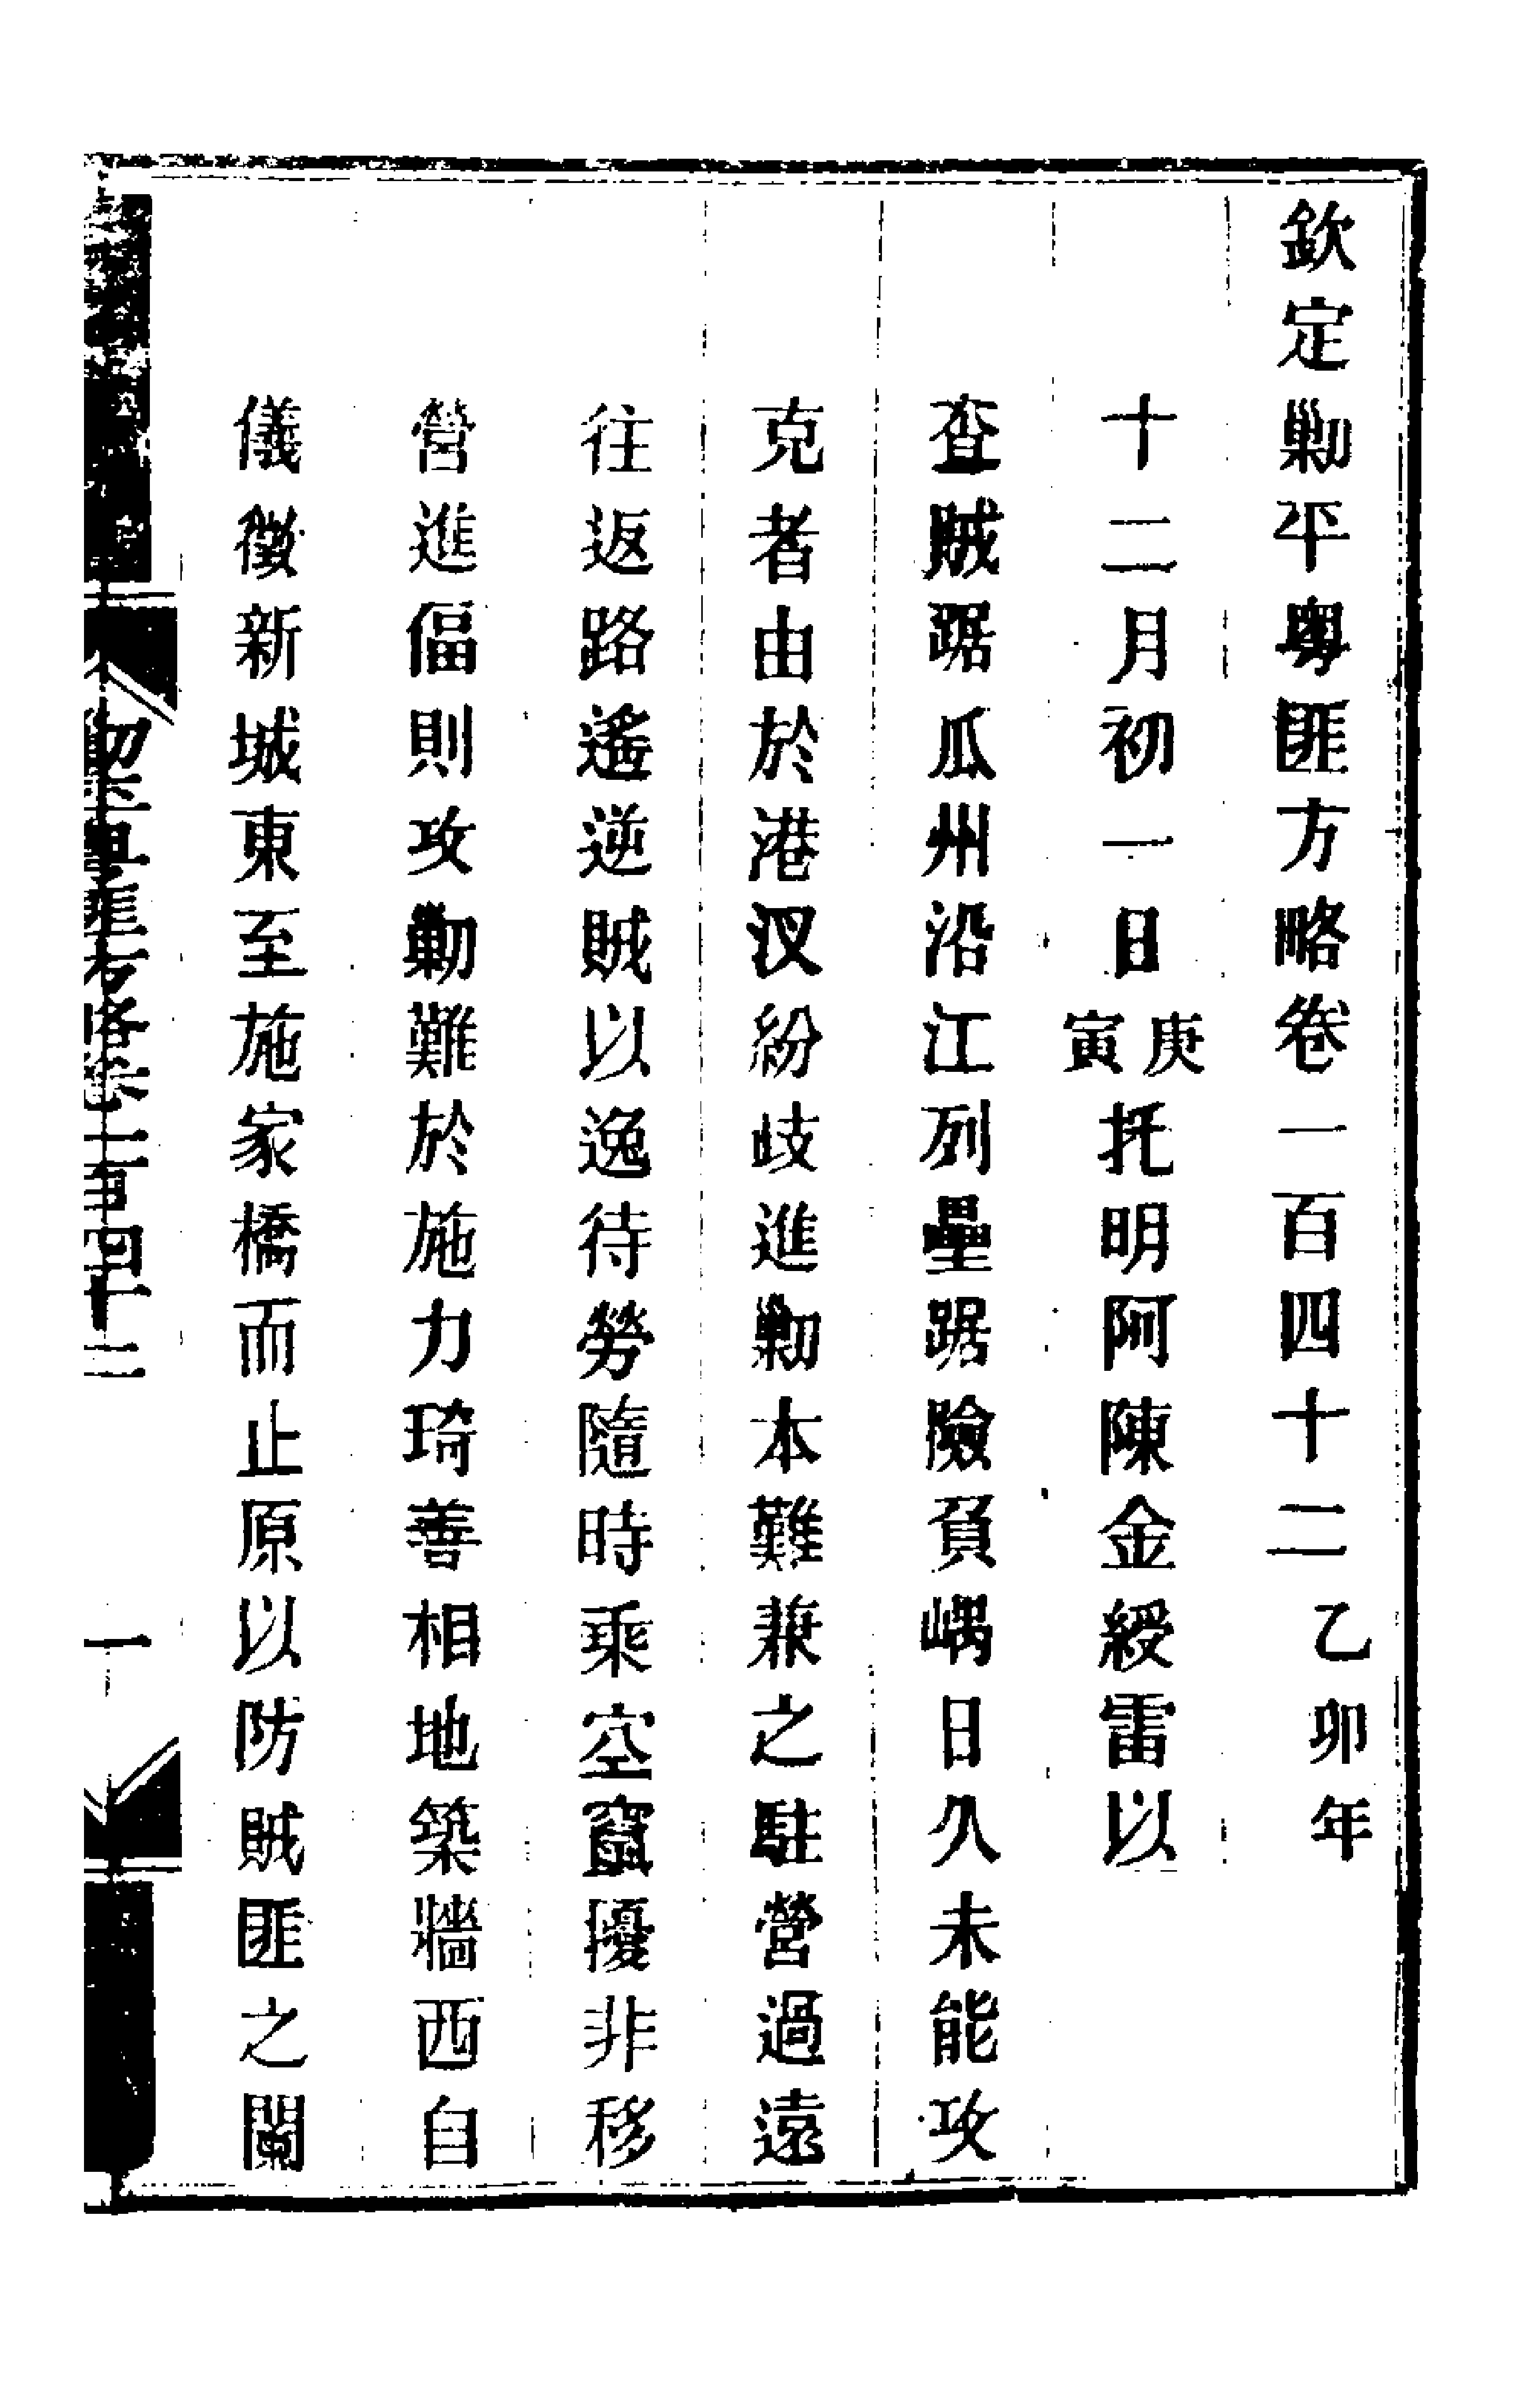 欽定勦平粵匪方略卷一百四十二 乙卯年
十二月初一日庚寅托明阿陳金綬雷以
查賊踞瓜州沿江列壘踞險負嵎日久未能攻
克者由於港汊紛歧進勦本難兼之駐營過遠
往返路遙逆賊以逸待勞隨時乘空竄擾非移
營進偪則攻勦難於施力琦善相地築牆西自
儀徵新城東至施家橋而止原以防賊匪之闌